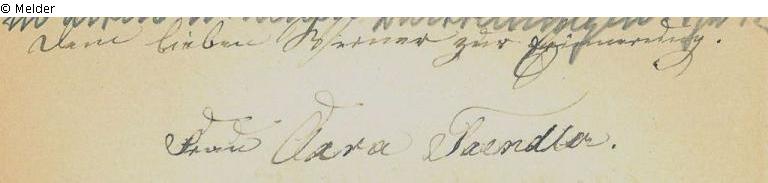 © Melder
Dem lieben Werner zur Erinnerung.
Frau Clara Taendler.